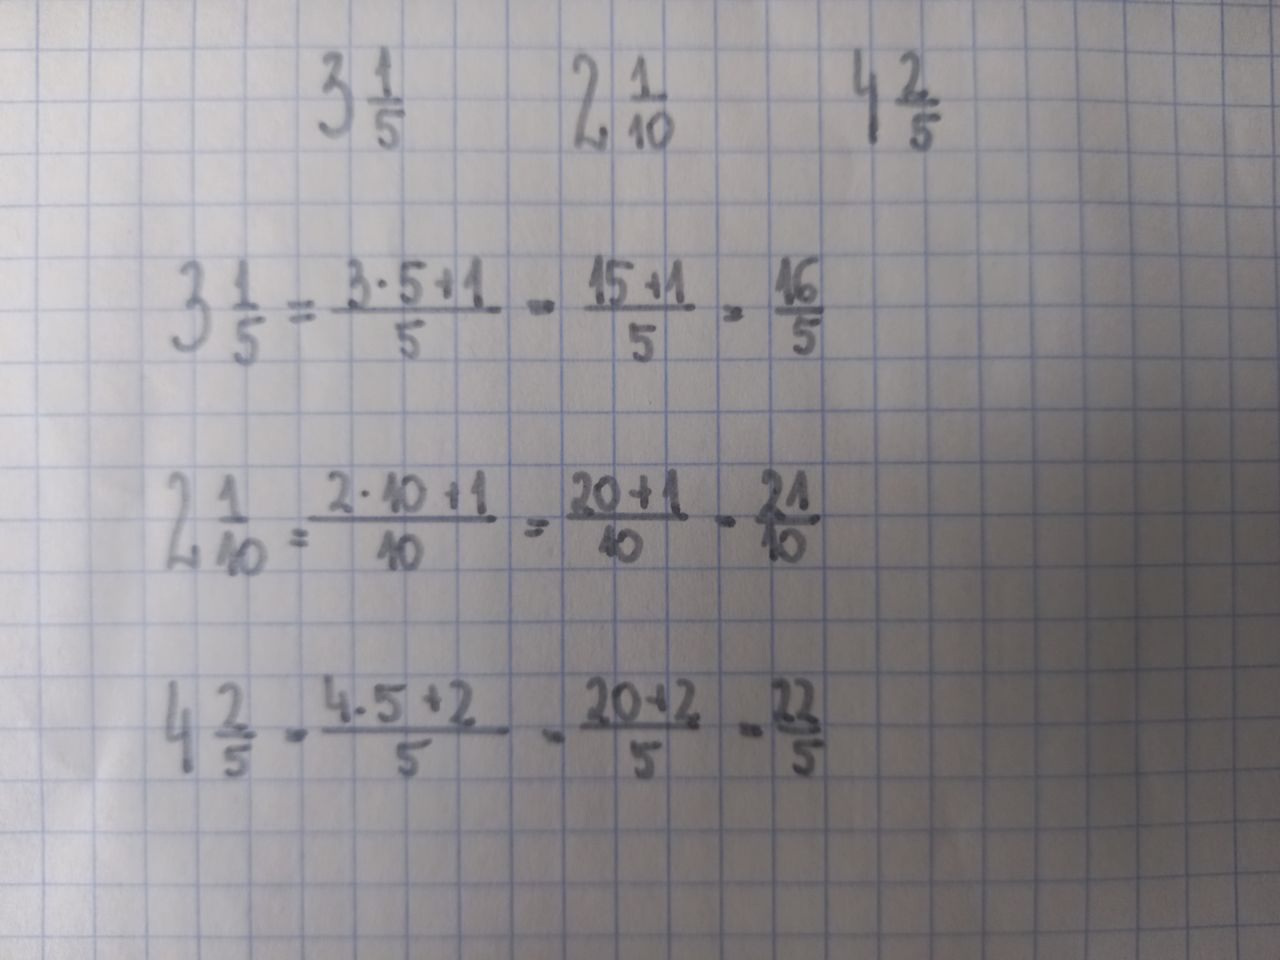 3 1/5 2 1/10 4 2/5
3 1/5 = (3·5+1)/5 = (15+1)/5 = 16/5
2 1/10 = (2·10+1)/10 = (20+1)/10 = 21/10
4 2/5 = (4·5+2)/5 = (20+2)/5 = 22/5